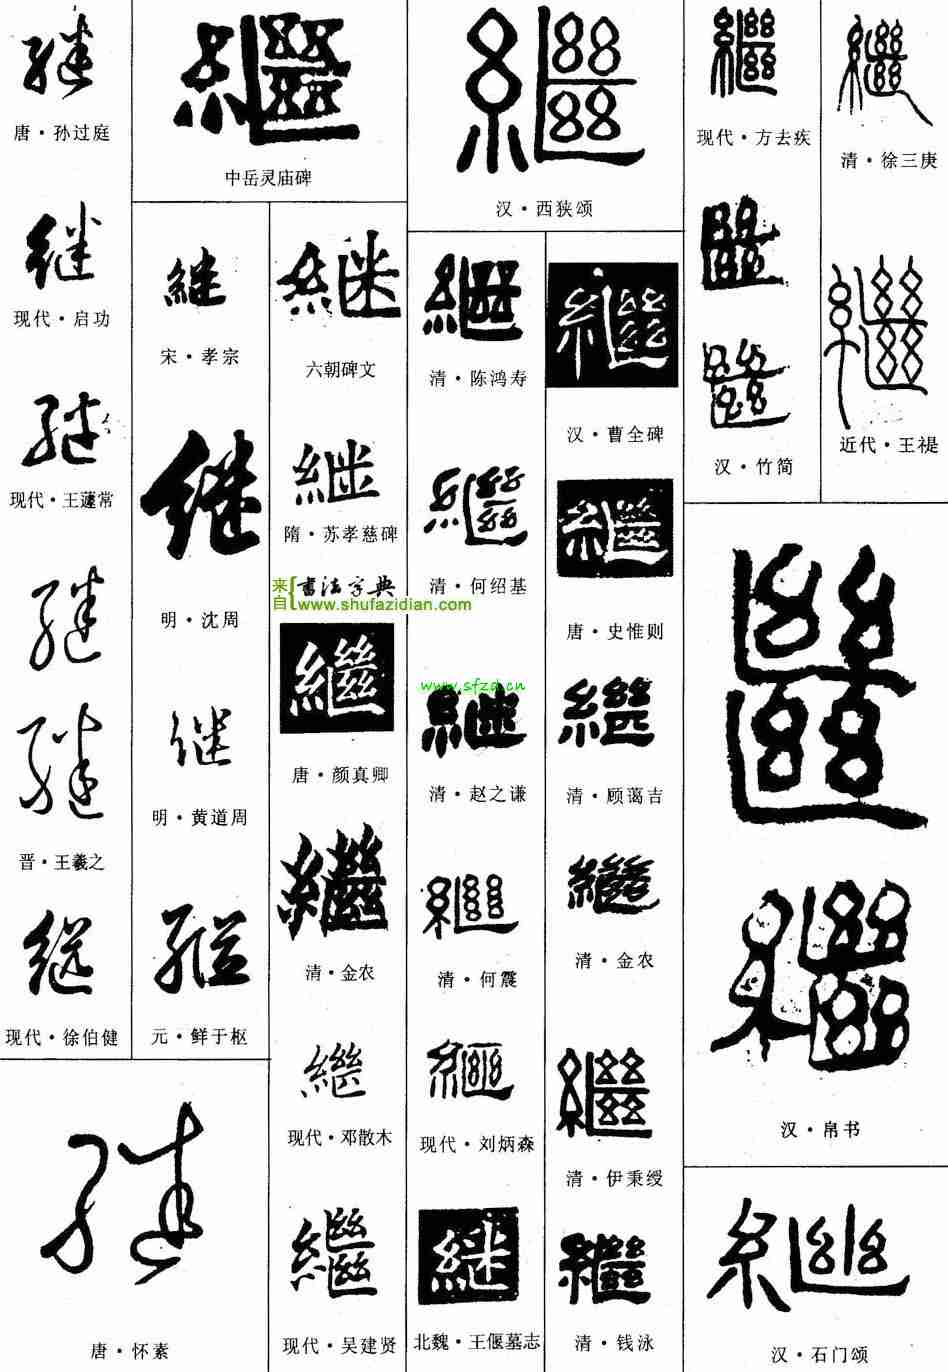 继
唐·孙过庭
继
现代·启功
继
现代·王蘧常
继
继
晋·王羲之
继
现代·徐伯健
继
唐·怀素
繼
中岳灵庙碑
継
宋·孝宗
继
明·沈周
继
明·黄道周
继
元·鲜于枢
継
六朝碑文
継
隋·苏孝慈碑
来自{书法字典
www.shufazidian.com
繼
唐·颜真卿
繼
清·金农
繼
现代·邓散木
繼
现代·吴建贤
繼
汉·西狭颂
繼
清·陈鸿寿
繼
清·何绍基
www.sfzd.cn
継
清·赵之谦
繼
清·何震
繼
现代·刘炳森
継
北魏·王偃墓志
繼
汉·曹全碑
繼
唐·史惟则
繼
清·顾蔼吉
繼
清·金农
繼
清·伊秉绶
繼
清·钱泳
繼
现代·方去疾
汉·竹简
繼
清·徐三庚
繼
近代·王禔
繼
汉·帛书
繼
汉·石门颂